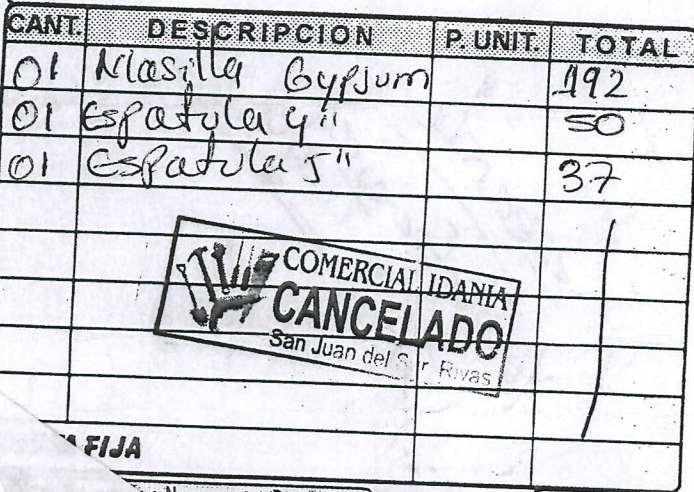 CANT. DESCRIPCION P. UNIT. TOTAL
01 Masilla Gypsum 192
01 Espatula 4" 50
01 Espatula 5" 37
COMERCIAL IDANIA
CANCELADO
San Juan del Sur Rivas
FIJA